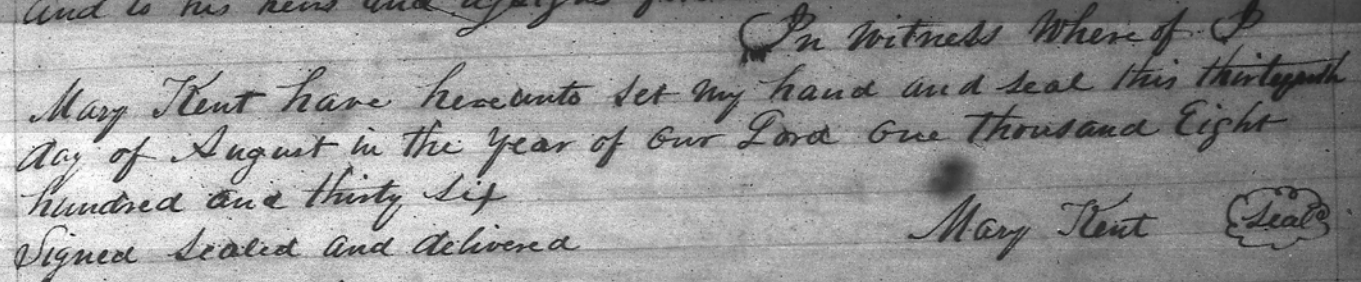 and to his heirs and assigns
In Witness Where of I
Mary Kent have hereunto set my hand and seal this thirteenth
day of August in the year of our Lord One thousand Eight
hundred and thirty six
Mary Kent Seal
Signed sealed and delivered